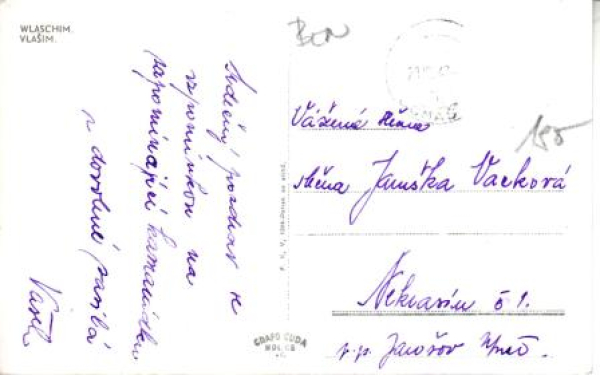 WLASCHIM.
VLAŠIM.
Srdečný pozdrav se
vzpomínkou na
zapomínající kamarádku
z dovolené zasílá
Vašek
Vážená slečna
slečna Jaruška Vacková
Nekrasín č 1.
p.p. Jarošov
GRAFO ČUDA
HOLICE